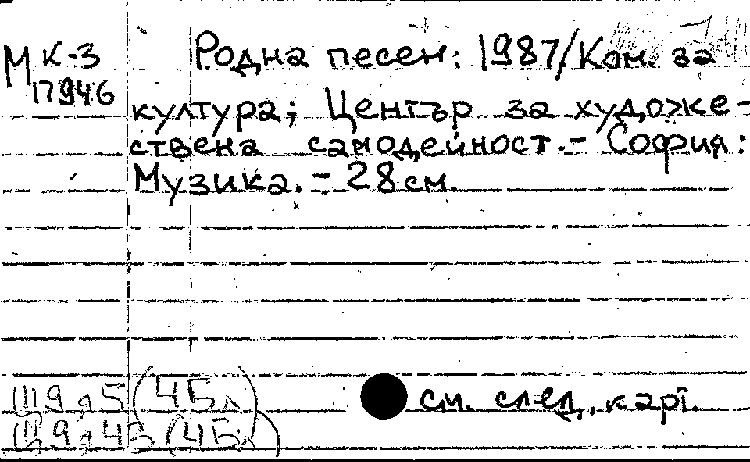 М К-3 Родна песен: 1987/Ком. за
17946
култура; Център за художе-
ствена самодейност.- София:
Музика. - 28 см.
Щ9,5(4Бл)
Щ9,45(4Бл)
см. след. карт.